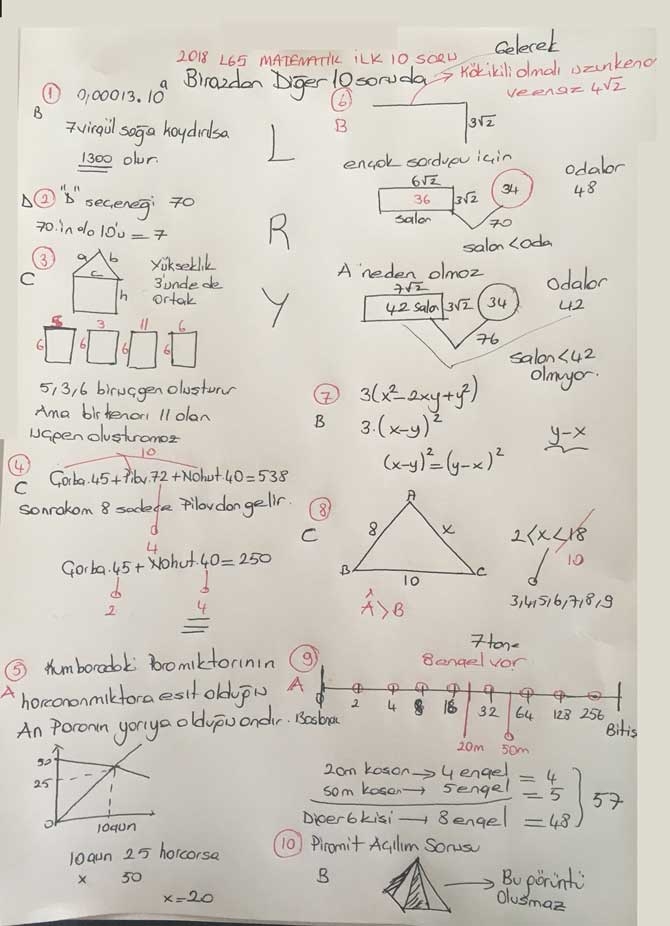 2018 LGS MATEMATİK İLK 10 SORU
Birazdan Diğer 10 soruda Gelecek
① 0,00013.10ᵃ
B
7 virgül sağa kaydırılsa
1300 olur.
D ② "D" seçeneği 70
70.in %10'u = 7
③
C
a b
c
h
Yükseklik
3'ünde de
ortak
5 3 11 6
6 6 6 6
5,3,6 bir üçgen oluşturur
Ama bir kenarı 11 olan
üçgen oluşturamaz
④
C
10
Çorba.45+Pilav.72+Nohut.40=538
Son rakam 8 sadece Pilavdan gelir.
4
Çorba.45+Nohut.40=250
2 4
⑤ Kumbaradaki Para miktarının
A harcanan miktara eşit olduğu
An Paranın yarıya olduğu andır.
50
25
0
10gün
10gün 25 harcarsa
x 50
x=20
L
R
Y
⑥
B
Kökikili olmalı uzunkenar
ve en az 4√2
3√2
en çok sorduğu için
6√2
36
3√2
34
salon
70
salon<oda
Odalar
48
A neden olmaz
7√2
42 salon
3√2
34
76
Odalar
42
salon<42
olmuyor.
⑦ 3(x²-2xy+y²)
B 3.(x-y)²
(x-y)²=(y-x)²
y-x
⑧
C
A
8 x
B 10 C
Â>B
2<x<18
10
3,4,5,6,7,8,9
⑨
A
7 tane
8 engel var
2 4 8 16 32 64 128 256
Bitiş
20m 50m
20m koşan → 4 engel = 4
50m koşan → 5 engel = 5
Diğer 6 kişi → 8 engel = 48
57
⑩ Piramit Açılım Sorusu
B
→ Bu görüntü
Oluşmaz